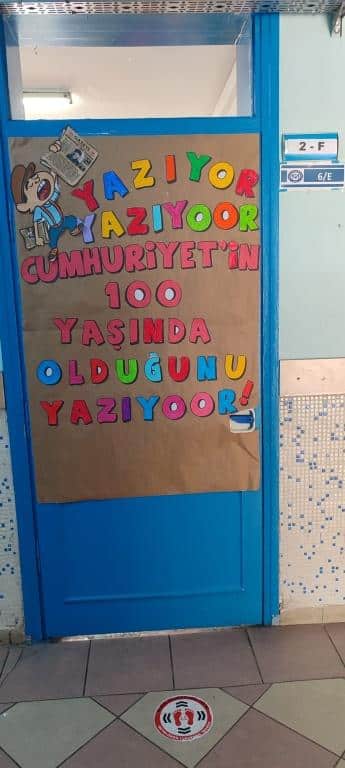 YAZIYOR
YAZIYOOR
CUMHURİYET'İN
100
YAŞINDA
OLDUĞUNU
YAZIYOOR!
2 - F
6/E